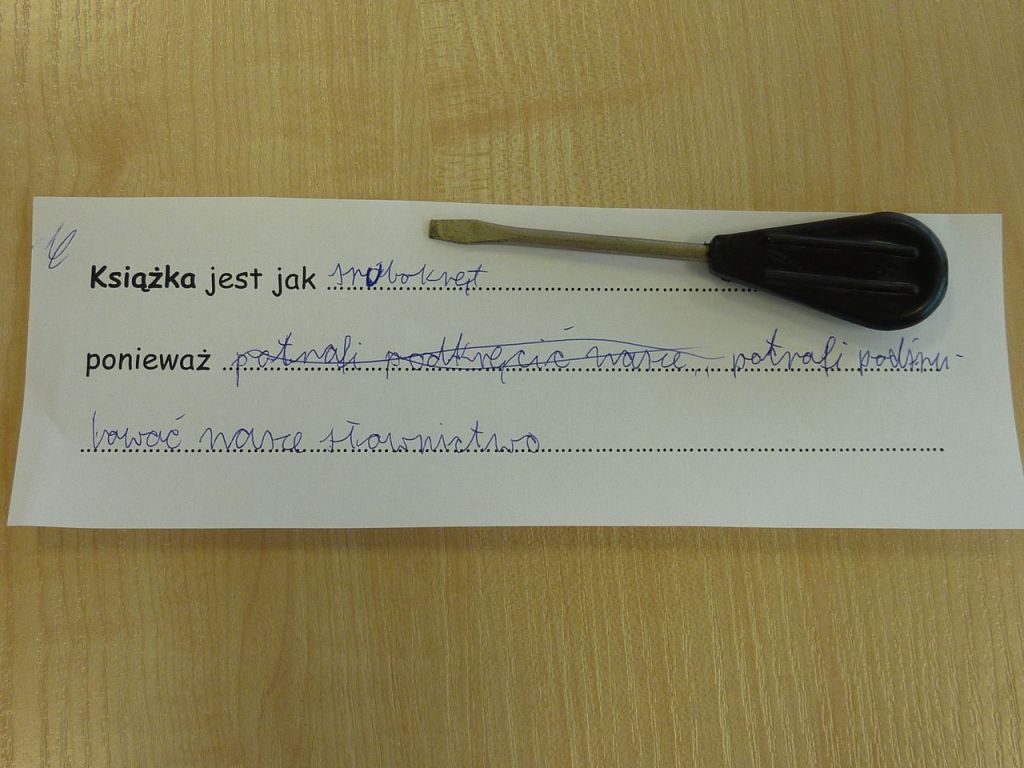 Książka jest jak śrubokręt
ponieważ potrafi podkręcić nasze potrafi podśru-
bować nasze słownictwo